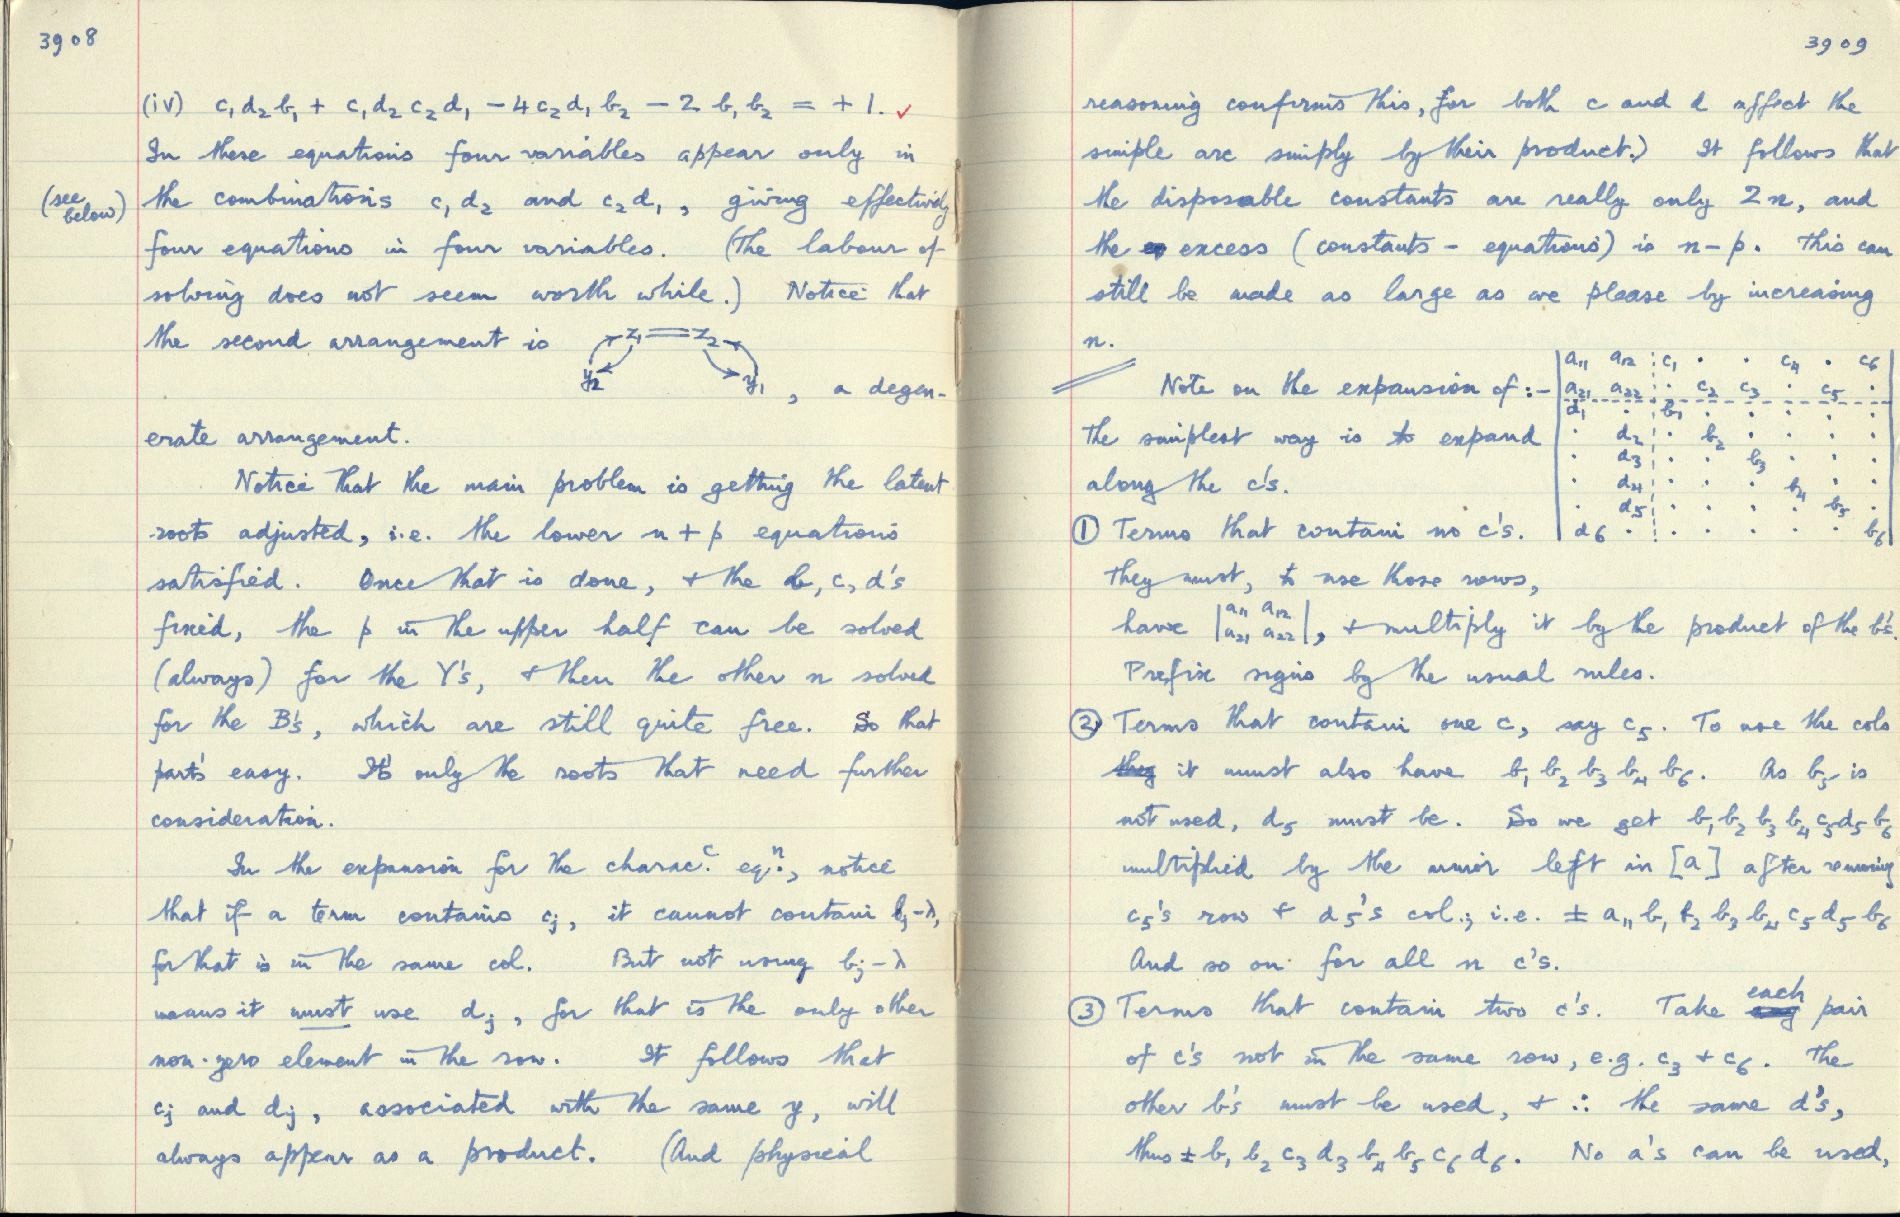 3908
(iv) c₁d₂b₁ + c₁d₂c₂d₁ − 4c₂d₁b₂ − 2b₁b₂ = +1. ✓
In these equations four variables appear only in
(see below) the combinations c₁d₂ and c₂d₁, giving effectively
four equations in four variables. (The labour of
solving does not seem worth while.) Notice that
the second arrangement is z₁ z₂
y₂ y₁ , a degen-
erate arrangement.
Notice that the main problem is getting the latent
roots adjusted, i.e. the lower n+p equations
satisfied. Once that is done, + the b, c, d's
fixed, the p in the upper half can be solved
(always) for the Y's, + then the other n solved
for the B's, which are still quite free. So that
part's easy. It's only the roots that need further
consideration.
In the expansion for the charac.ᶜ eq.ⁿ, notice
that if a term contains cⱼ, it cannot contain bⱼ−λ,
for that is in the same col. But not using bⱼ−λ
means it must use dⱼ, for that is the only other
non-zero element in the row. It follows that
cⱼ and dⱼ, associated with the same y, will
always appear as a product. (And physical
3909
reasoning confirms this, for both c and d affect the
simple arc simply by their product.) It follows that
the disposable constants are really only 2n, and
the excess (constants − equations) is n−p. This can
still be made as large as we please by increasing
n.
Note on the expansion of :−
a₁₁ a₁₂ c₁ · · c₄ · c₆
a₂₁ a₂₂ · c₂ c₃ · c₅ ·
d₁ · b₁ · · · · ·
· d₂ · b₂ · · · ·
· d₃ · · b₃ · · ·
· d₄ · · · b₄ · ·
· d₅ · · · · b₅ ·
d₆ · · · · · · b₆
The simplest way is to expand
along the c's.
① Terms that contain no c's.
They must, to use those rows,
have |a₁₁ a₁₂ a₂₁ a₂₂|, + multiply it by the product of the b's.
Prefix signs by the usual rules.
② Terms that contain one c, say c₅. To use the cols
they it must also have b₁ b₂ b₃ b₄ b₆. As b₅ is
not used, d₅ must be. So we get b₁ b₂ b₃ b₄ c₅ d₅ b₆
multiplied by the minor left in [a] after removing
c₅'s row + d₅'s col.; i.e. ± a₁₁ b₁ b₂ b₃ b₄ c₅ d₅ b₆
And so on for all n c's.
③ Terms that contain two c's. Take each pair
of c's not in the same row, e.g. c₃ + c₆. The
other b's must be used, + ∴ the same d's,
thus ± b₁ b₂ c₃ d₃ b₄ b₅ c₆ d₆. No a's can be used,